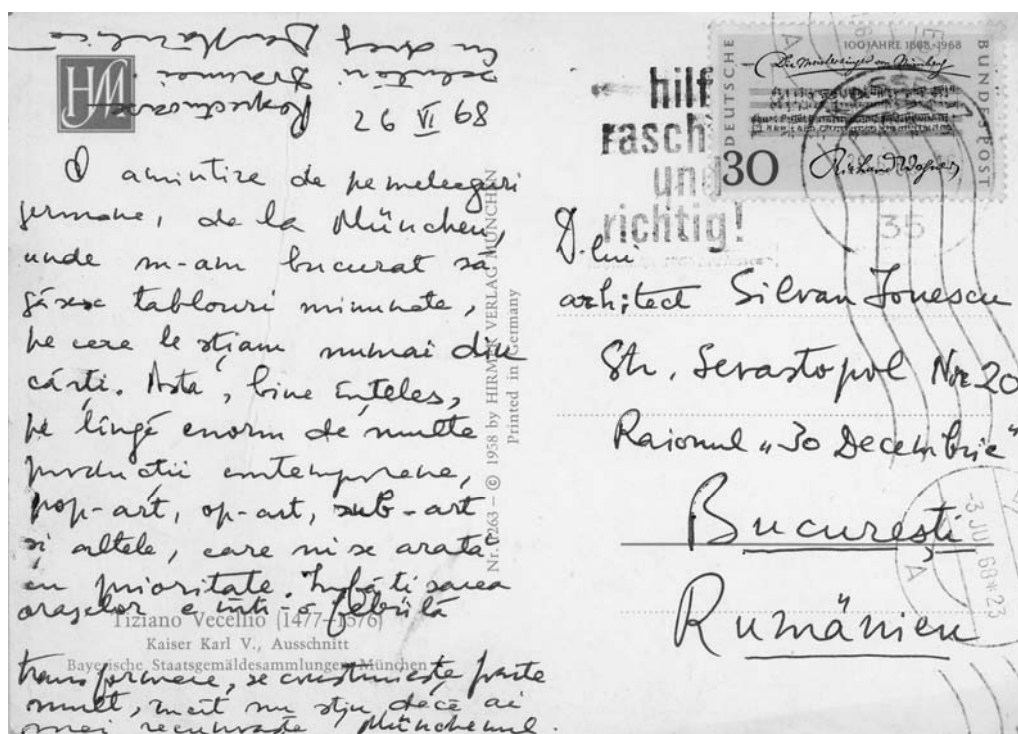 O amintire de pe meleaguri
germane, de la München,
unde m-am bucurat să
găsesc tablouri minunate,
pe care le știam numai din
cărți. Asta, bine înțeles,
pe lîngă enorm de multe
producții contemporane,
pop-art, op-art, sub-art
și altele, care ni se arată
cu prioritate. Înfățisarea
orașelor e într-o febrilă
transformare, se construiește foarte
mult, încît nu știu dacă ai
mai recunoaște Münchenul.
Respectuoase
salutări Doamnei
Cu drag
26 VI 68
HM
Tiziano Vecellio (1477–1576)
Kaiser Karl V., Ausschnitt
Bayerische Staatsgemäldesammlungen München
Nr. 263 – © 1958 by HIRMER VERLAG MÜNCHEN
Printed in Germany
hilf
rasch
und
richtig!
DEUTSCHE
BUNDESPOST
100 JAHRE 1868-1968
Die Meistersinger von Nürnberg
Richard Wagner
30
35
D-lui
arhitect Silvan Ionescu
Str. Sevastopol Nr. 20
Raionul „30 Decembrie"
București
Rumänien
-3 JUL 68*23